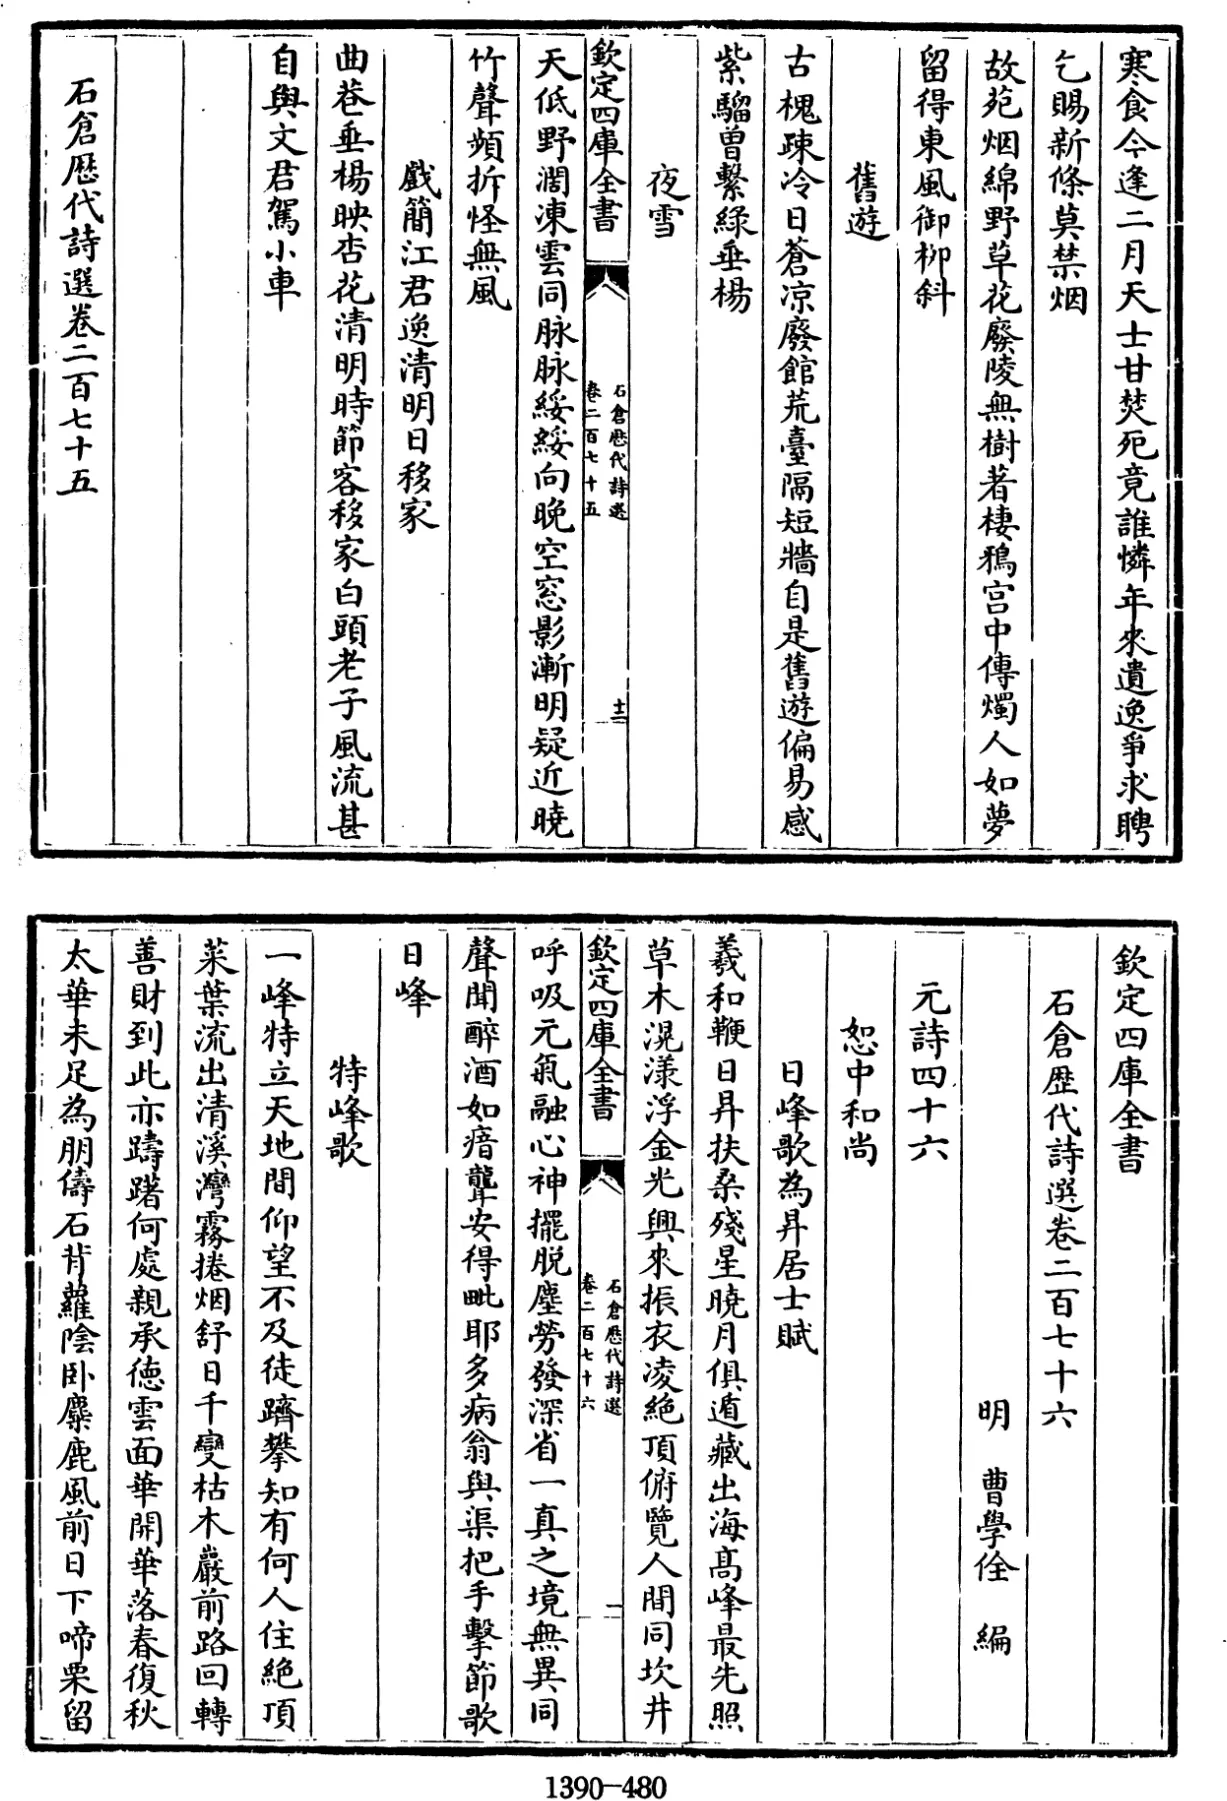 寒食今逢二月天士甘焚死竟誰憐年來遺逸爭求聘
乞賜新條莫禁烟
故苑烟綿野草花廢陵無樹著棲鴉宫中傳燭人如夢
留得東風御柳斜
舊遊
古槐踈冷日蒼凉廢館荒臺隔短牆自是舊遊偏易感
紫騮曽繫緑垂楊
夜雪
欽定四庫全書
石倉歷代詩選
卷二百七十五
十二
天低野濶凍雲同脉脉綏綏向晚空窓影漸明疑近曉
竹聲頻折怪無風
戲簡江君逸清明日移家
曲巷垂楊映杏花清明時節客移家白頭老子風流甚
自與文君駕小車
石倉歷代詩選卷二百七十五
欽定四庫全書
石倉歷代詩選卷二百七十六
明 曹學佺 編
元詩四十六
恕中和尚
日峰歌為昇居士賦
羲和鞭日昇扶桑殘星曉月俱遁藏出海髙峰最先照
草木滉漾浮金光興來振衣凌絶頂俯覽人間同坎井
欽定四庫全書
石倉歷代詩選
卷二百七十六
一
呼吸元氣融心神擺脱塵勞發深省一真之境無異同
聲聞醉酒如瘖聾安得毗耶多病翁與渠把手擊節歌
日峰
特峰歌
一峰特立天地間仰望不及徒躋攀知有何人住絶頂
菜葉流出清溪灣霧捲烟舒日千變枯木巖前路回轉
善財到此亦躊躇何處親承徳雲面華開華落春復秋
太華未足為朋儔石背蘿陰卧麋鹿風前日下啼栗留
1390-480